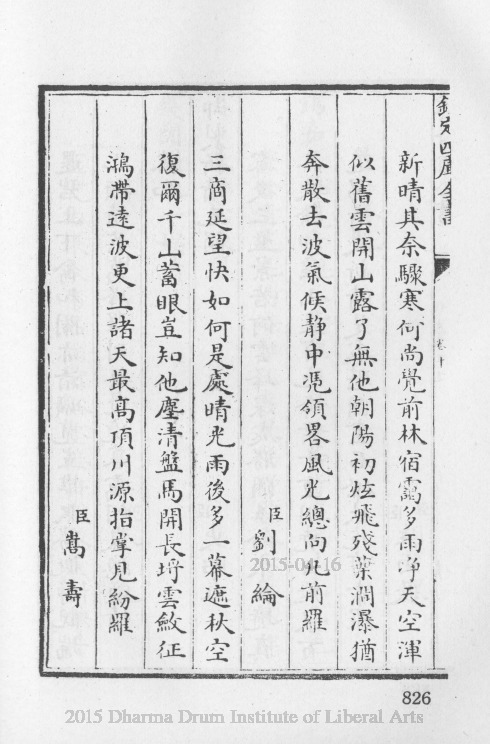 欽定四庫全書
卷十
新晴其奈驟寒何尚覺前林宿靄多雨净天空渾
似舊雲開山露了無他朝陽初炫飛殘葉澗瀑猶
奔散去波氣候静中凴領畧風光總向九前羅
臣劉綸
三商延望快如何是處晴光雨後多一幕遮秋空
復爾千山蓄眼豈知他塵清盤馬開長埒雲斂征
鴻帶遠波更上諸天最髙頂川源指掌見紛羅
臣嵩壽
2015-04-16
826
2015 Dharma Drum Institute of Liberal Arts